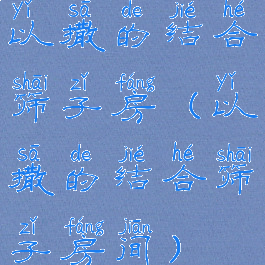 yǐ sā de jié hé
以撒的结合
shāi zǐ fáng yǐ
筛子房（以
sā de jié hé shāi
撒的结合筛
zǐ fáng jiān
子房间）